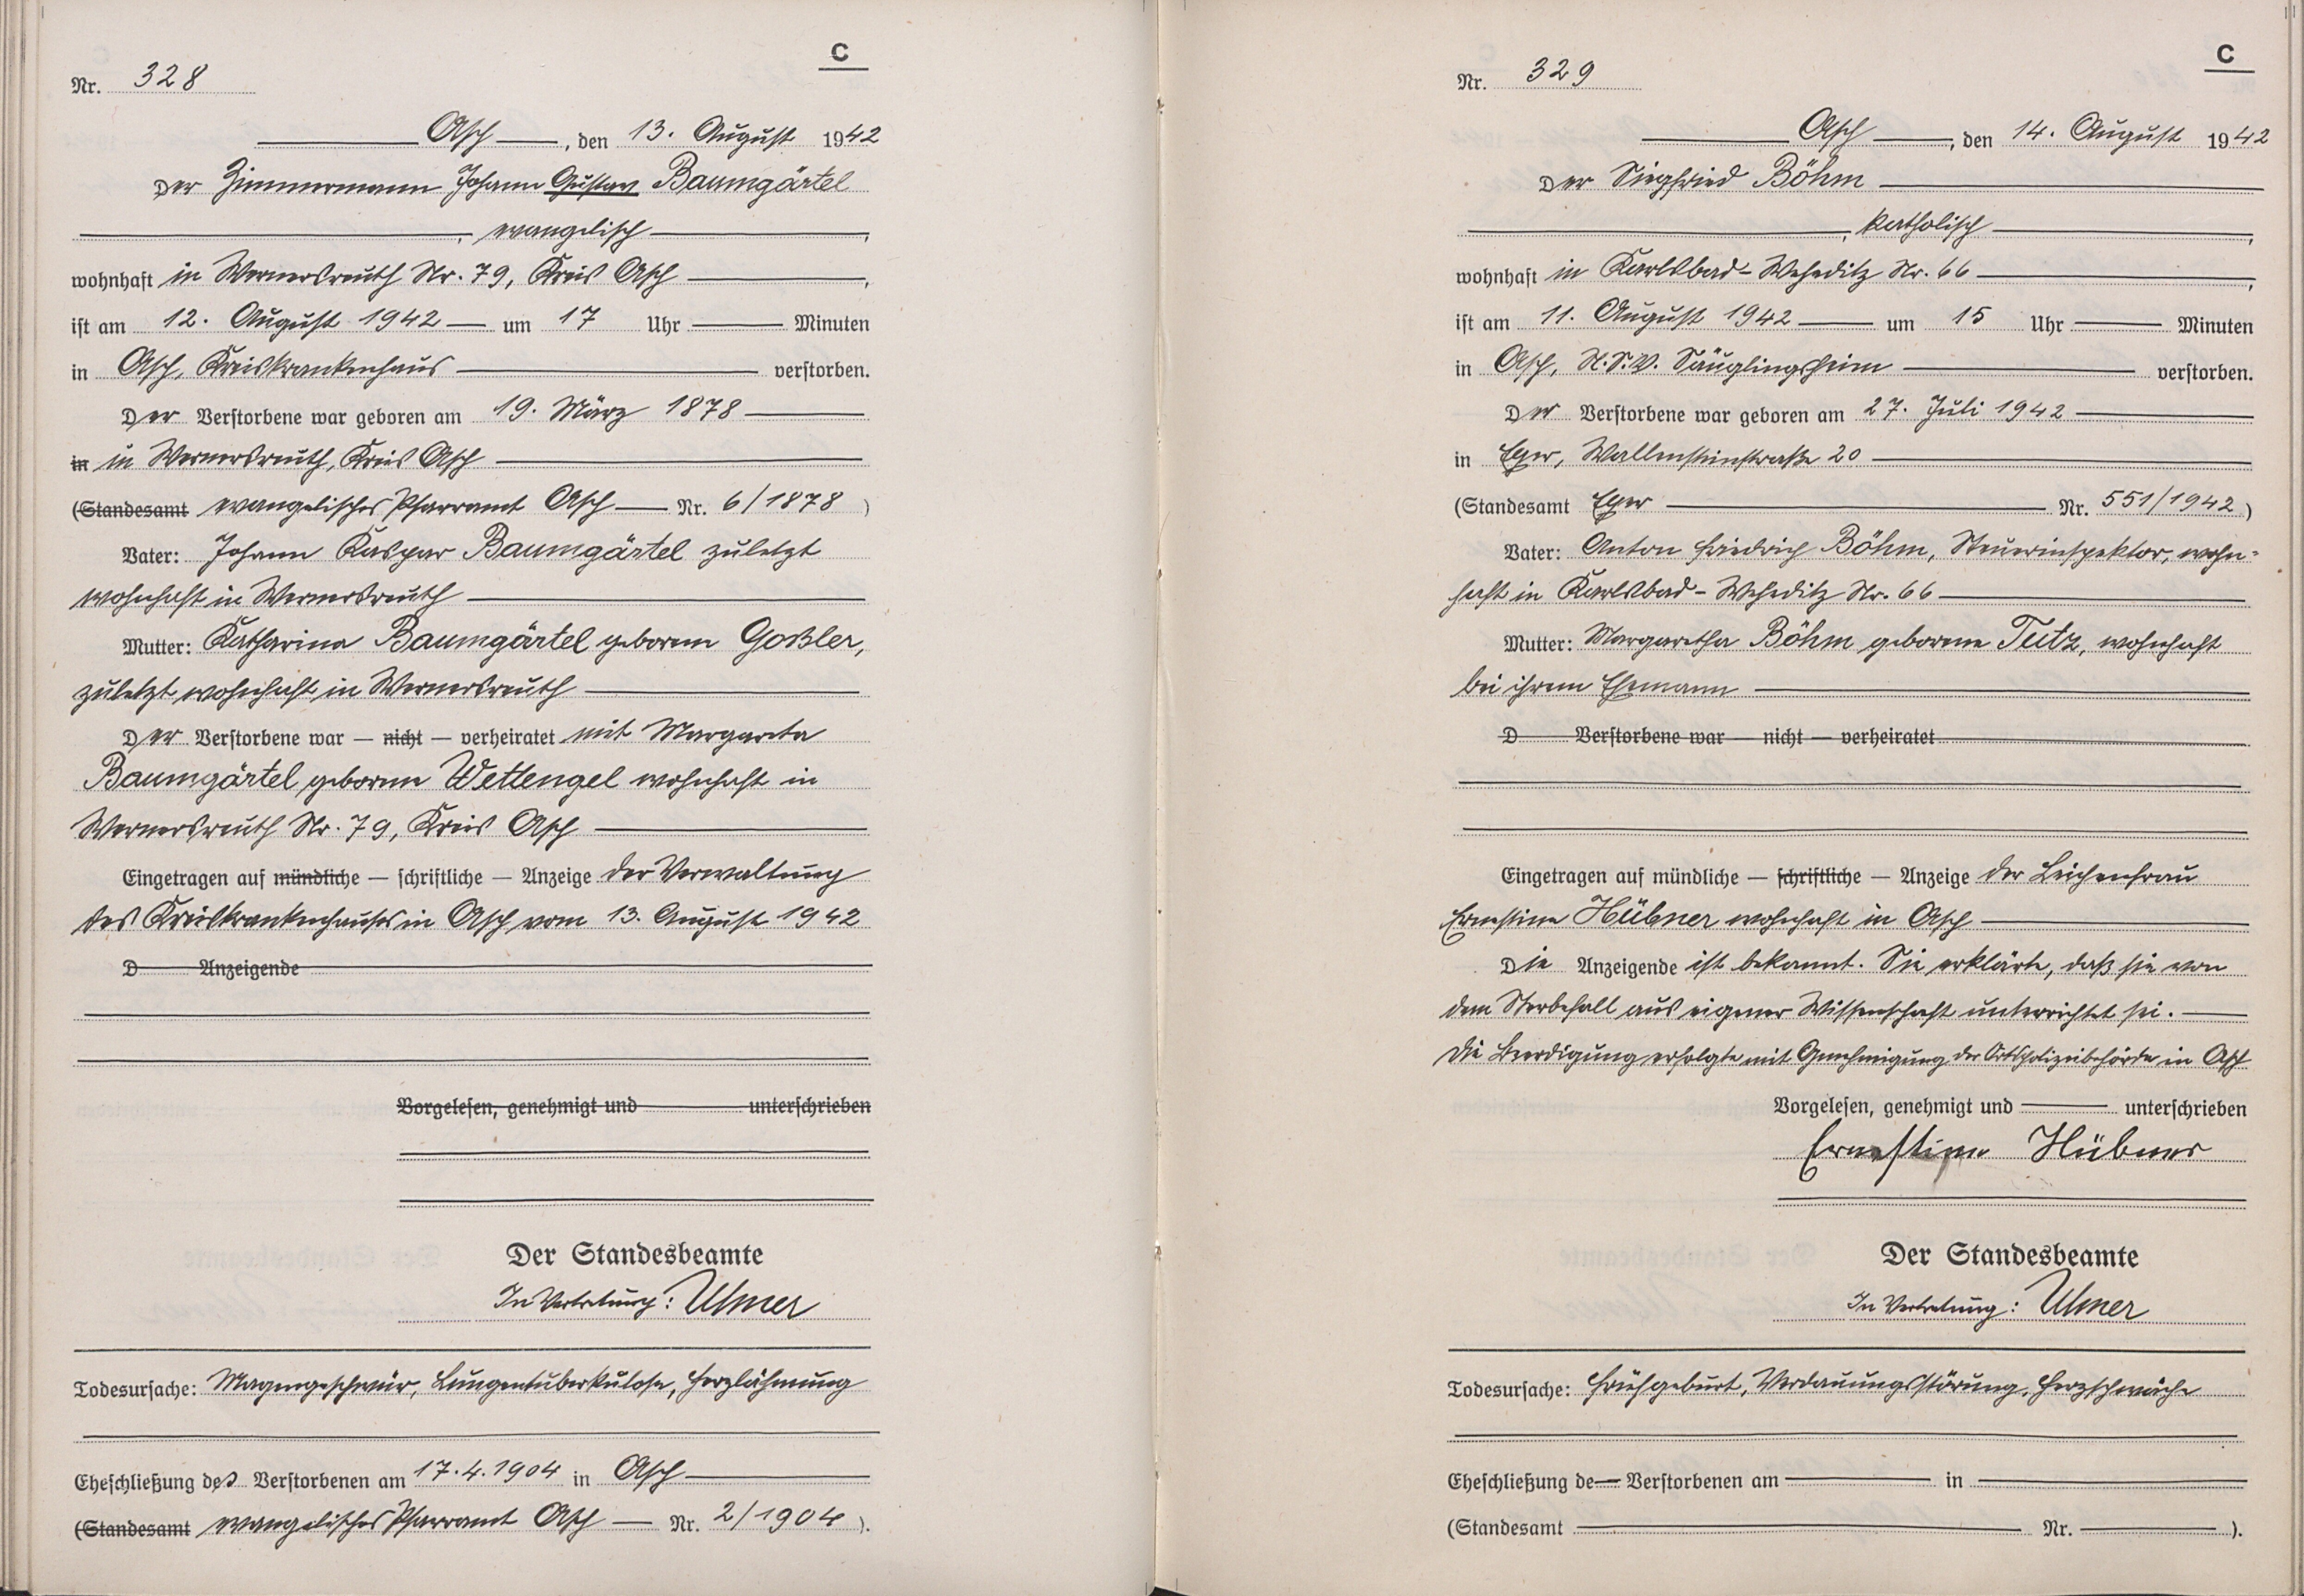 C
Nr. 328
Asch, den 13. August 1942
Der Zimmermann Johann Gustav Baumgärtel
, evangelisch,
wohnhaft in Wernersreuth Nr. 79, Kreis Asch,
ist am 12. August 1942 um 17 Uhr Minuten
in Asch, Kreiskrankenhaus verstorben.
Der Verstorbene war geboren am 19. März 1878
in in Wernersreuth, Kreis Asch
(Standesamt evangelisches Pfarramt Asch Nr. 6/1878)
Vater: Johann Kaspar Baumgärtel zuletzt
wohnhaft in Wernersreuth
Mutter: Katharina Baumgärtel geborene Goßler,
zuletzt wohnhaft in Wernersreuth
Der Verstorbene war — nicht — verheiratet mit Margareta
Baumgärtel geborene Wettengel wohnhaft in
Wernersreuth Nr. 79, Kreis Asch
Eingetragen auf mündliche — schriftliche — Anzeige der Verwaltung
des Kreiskrankenhauses in Asch vom 13. August 1942
D Anzeigende
Vorgelesen, genehmigt und unterschrieben
Der Standesbeamte
In Vertretung: Ulmer
Todesursache: Magengeschwür, Lungentuberkulose, Herzlähmung
Eheschließung des Verstorbenen am 17.4.1904 in Asch
(Standesamt evangelisches Pfarramt Asch — Nr. 2/1904).
C
Nr. 329
Asch, den 14. August 1942
Der Siegfried Böhm
, katholisch,
wohnhaft in Karlsbad-Weheditz Nr. 66,
ist am 11. August 1942 um 15 Uhr Minuten
in Asch, N.S.V. Säuglingsheim verstorben.
Der Verstorbene war geboren am 27. Juli 1942
in Eger, Wallensteinstraße 20
(Standesamt Eger Nr. 551/1942)
Vater: Anton Friedrich Böhm, Steuerinspektor, wohn-
haft in Karlsbad-Weheditz Nr. 66
Mutter: Margaretha Böhm geborene Tutz, wohnhaft
bei ihrem Ehemann
D Verstorbene war — nicht — verheiratet
Eingetragen auf mündliche — schriftliche — Anzeige der Leichenfrau
Ernestine Hübner wohnhaft in Asch
Die Anzeigende ist bekannt. Sie erklärte, daß sie von
dem Sterbefall aus eigener Wissenschaft unterrichtet sei.
Die Beerdigung erfolgte mit Genehmigung der Ortspolizeibehörde in Asch
Vorgelesen, genehmigt und unterschrieben
Ernestine Hübner
Der Standesbeamte
In Vertretung: Ulmer
Todesursache: Frühgeburt, Verdauungsstörung, Herzschwäche
Eheschließung de Verstorbenen am in
(Standesamt Nr. ).